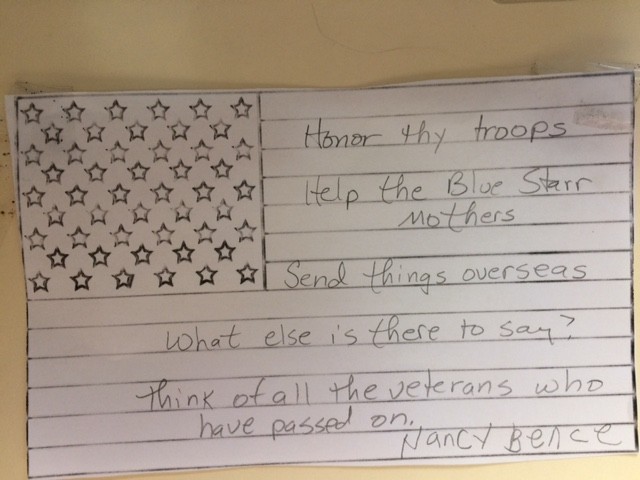 Honor thy troops
Help the Blue Starr
Mothers
Send things overseas
What else is there to say?
Think of all the veterans who
have passed on.
Nancy Bence